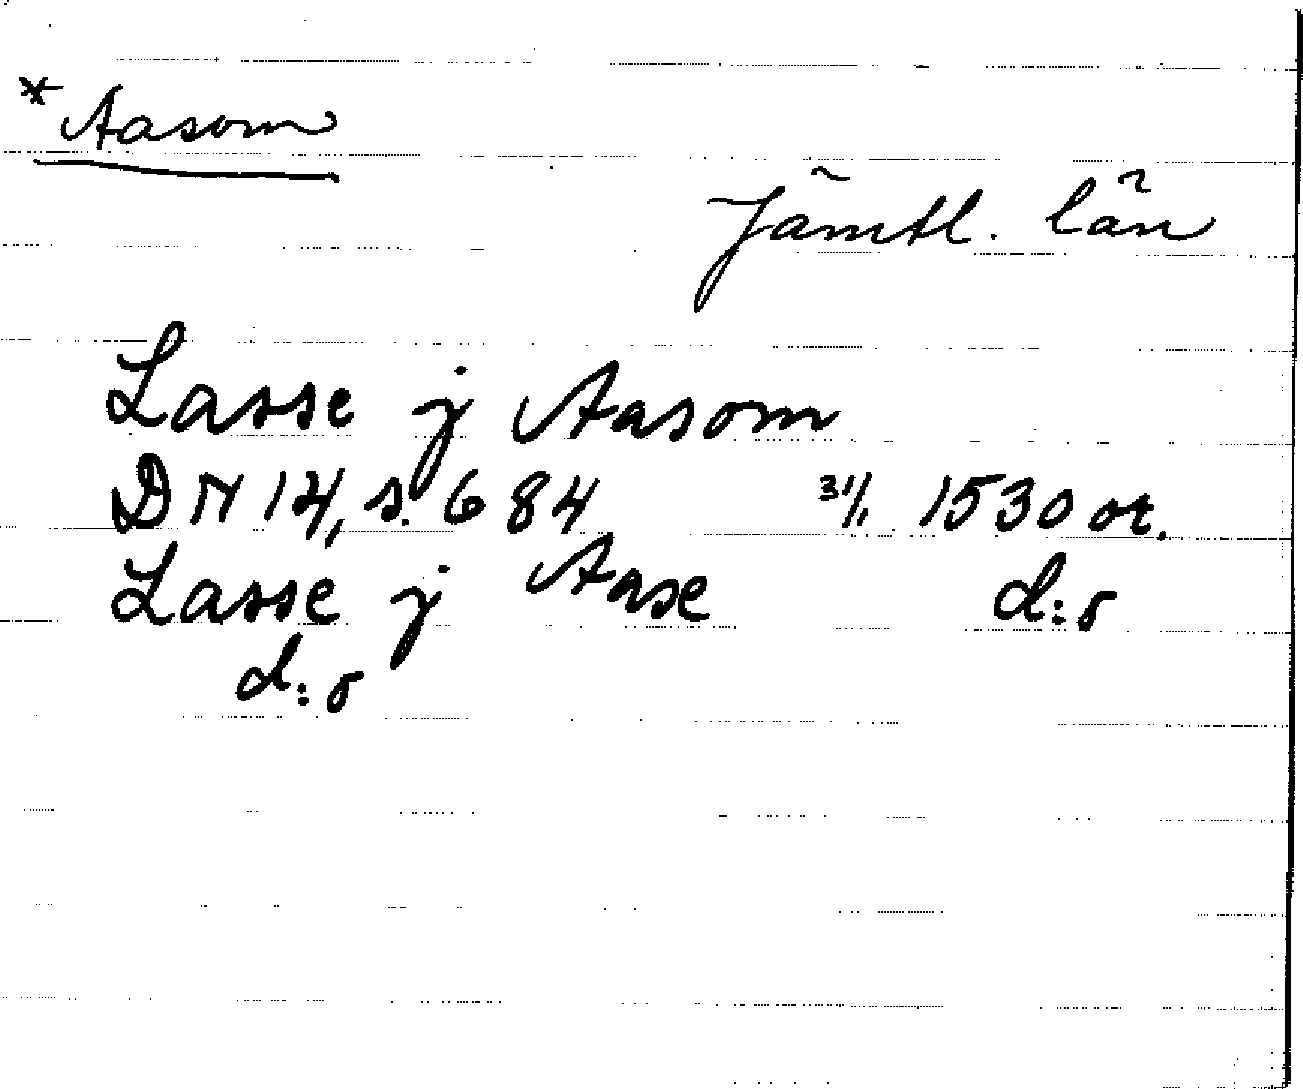 *Aasom
Jämtl. län
Lasse j Aasom
DN 14, s. 684 31/1 1530 or.
Lasse j Aase d:o
d:o